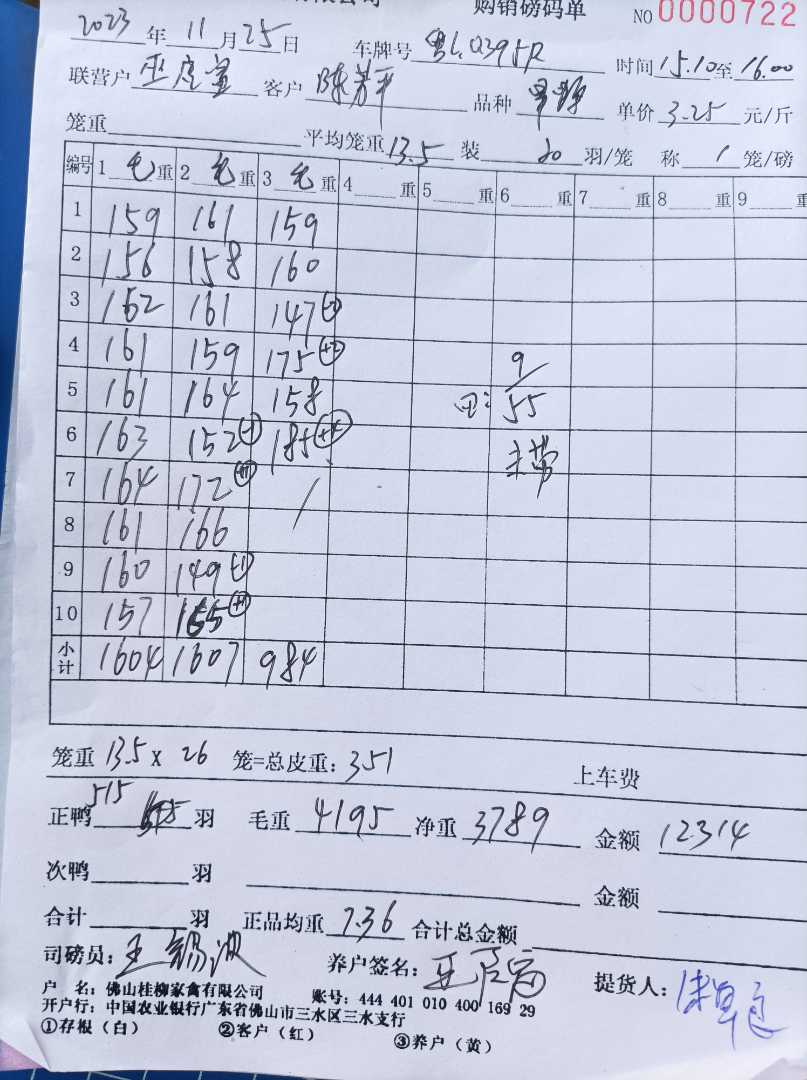 购销磅码单 NO 0000722
2023 年 11 月 25 日 车牌号 粤L0395R 时间 15.10 至 16.00
联营户 客户 陈 平 品种 单价 3.25 元/斤
笼重 平均笼重 13.5 装 20 羽/笼 称 1 笼/磅
编号 1 毛 重 2 毛 重 3 毛 重 4 重 5 重 6 重 7 重 8 重 9 重
1 159 161 159
2 156 158 160
3 162 161 147
4 161 159 175
5 161 164 158
9
55
6 163 152 185
7 164 172
8 161 166
9 160 149 (-1)
10 157 165
小计 1604 1607 984
笼重 13.5 x 26 笼=总皮重: 351 上车费
正鸭 515 羽 毛重 4195 净重 3789 金额 12314
次鸭 羽 金额
合计 羽 正品均重 7.36 合计总金额
司磅员: 王锡波 养户签名: 提货人:
户 名: 佛山桂柳家禽有限公司 账号: 444 401 010 400 169 29
开户行: 中国农业银行广东省佛山市三水区三水支行
①存根(白) ②客户(红) ③养户(黄)